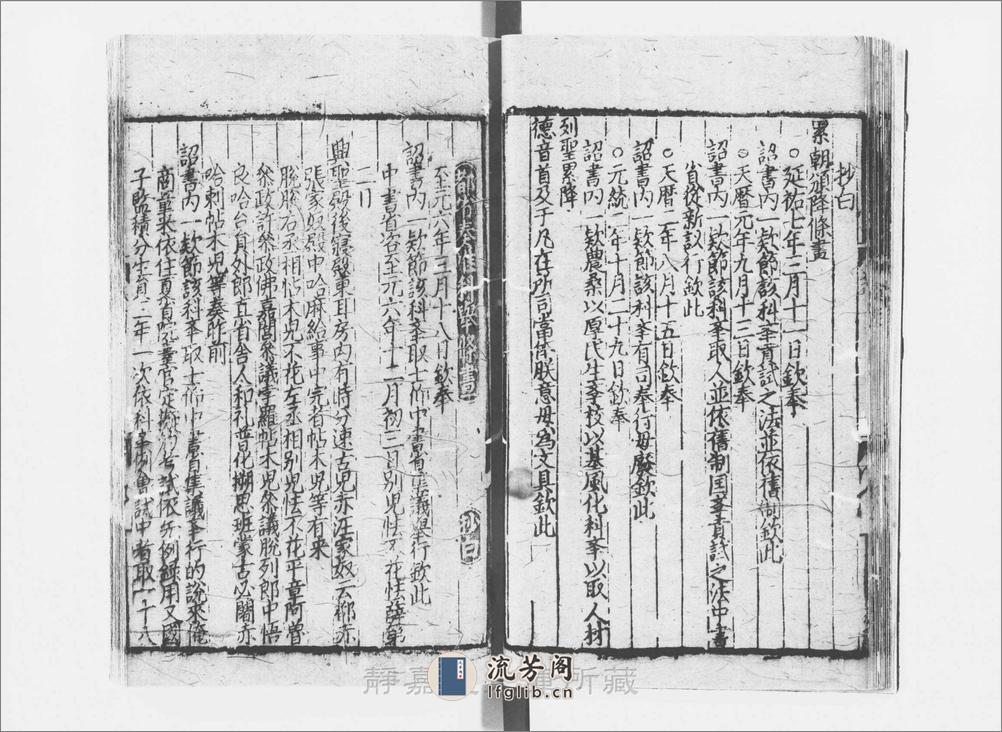 抄白
累朝頒降條畫
○延祐七年三月十一日欽奉
詔書內一欵節該科舉貢試之法並依舊制欽此
○天曆元年九月十三日欽奉
詔書內一欵節該科舉取人並依舊制国學貢試之法中書
省從新設行欽此
○天曆二年八月十五日欽奉
詔書內一欵節該科舉有司奉行毋廢欽此
○元統二年十月二十九日欽奉
詔書內一欵農桑以厚民生學校以基風化科舉以取人材
列聖累降
德音首及于凡在所司當体朕意毋為文具欽此
條畫 抄白
至元六年三月十八日欽奉
詔書內一欵節該科舉取士仰中書省集議舉行欽此
中書省咨至元六年十二月初三日別児怯不花怯薛第
二日
興聖殿後寢殿東耳房內有時分速古児赤汪家奴云都赤
張家奴殿中哈麻給事中完者帖木児等有来
脫脫右丞相帖木児不花左丞相別児怯不花平章阿魯
叅政許叅政佛嘉閭叅議孛羅帖木児叅議脫列郎中悟
良哈台員外郎直省舍人和礼普化搠思班蒙古必闍赤
哈剌帖木児等奏昨前
詔書內一欵節該科舉取士仰中書省集議舉行的說來俺
商量來依住夏
用又國
子監積分生員三年一次依科舉例會試中者取一十八
静嘉 所藏
流芳阁
lfglib.cn